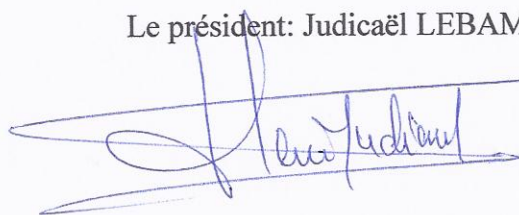 Le président: Judicaël LEBAM